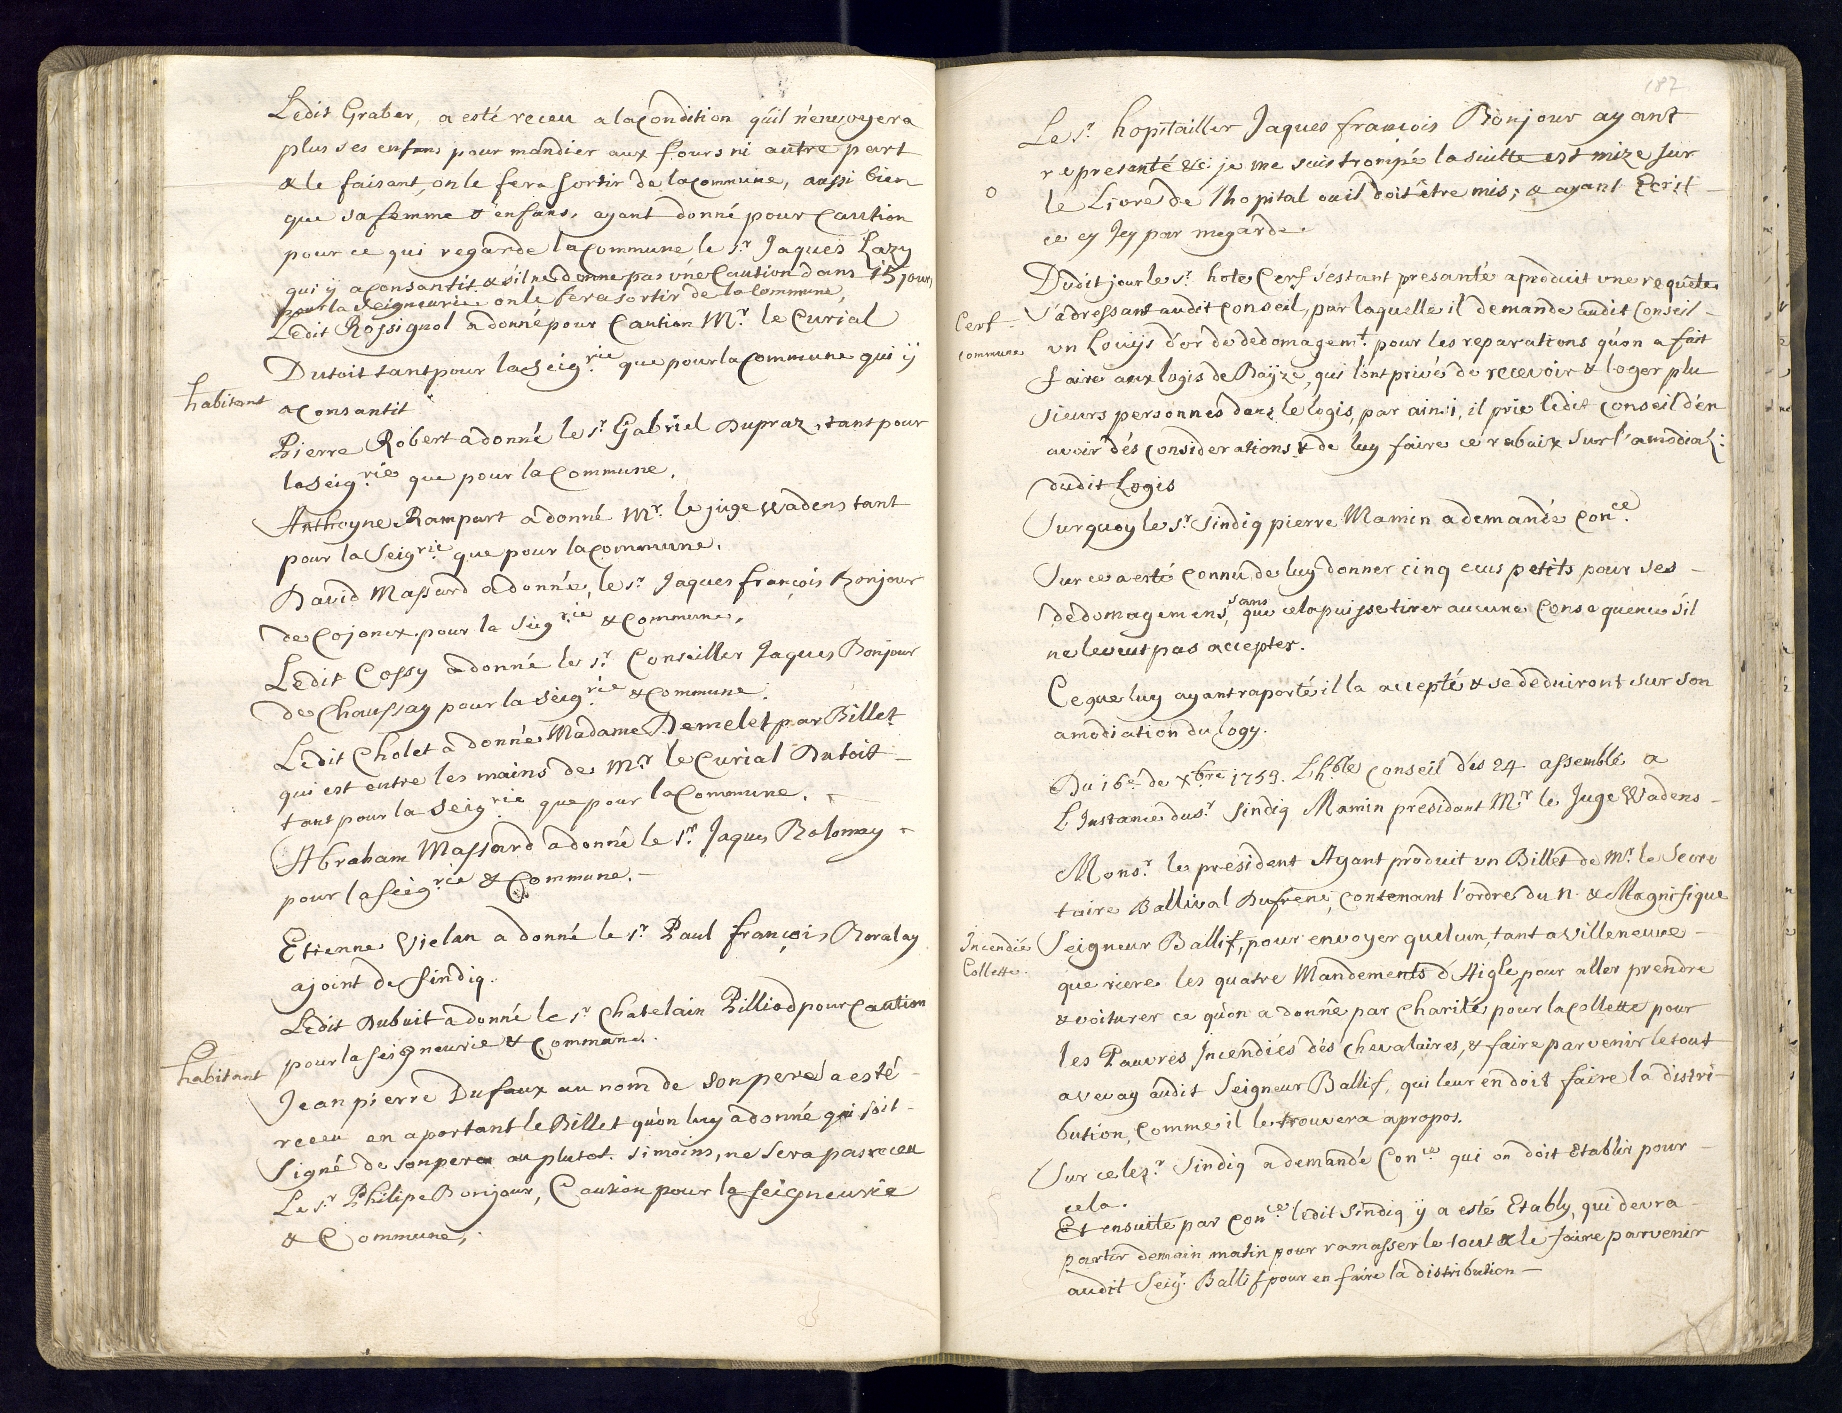 Ledit Graber, a esté receu a la Condition qu'il n'envoyera
plus ses enfans pour mandier aux fours ni autre part
& le faisant, on le fera sortir de la Commune, aussi bien
que sa femme & enfans, ayant donné pour Caution
pour ce qui regarde la Commune le Sr. Jaques Lazy
qui ÿ a consantit & s'il ne donne pas vne Caution dans 15 jours
pour la Seigneurie on le fera sortir de la Commune,
Ledit Rossignol a donné pour Caution Mr. le Curial
Dutoit tant pour la Seigrie. que pour la Commune qui ÿ
habitant
a Consantit
Pierre Robert a donné le Sr. Gabriel Dupraz, tant pour
la Seigrie. que pour la Commune,
Anthoyne Rampart a donné Mr. le juge Wadens tant
pour la Seigrie. que pour la Commune.
David Massard a donné, le Sr. Jaques françois Bonjour
de Cojonex pour la Seigrie. & Commune,
Ledit Cossy a donné le Sr. Conseiller Jaques Bonjour
de Chaussay pour la Seigrie. & Commune.
Ledit Cholet a donné Madame Demelet par Billet
qui est entre les mains de Mr. le Curial Dutoit
tant pour la Seigrie. que pour la Commune.
Abraham Massard a donné le Sr. Jaques Bolomay
pour la Seigrie. & Commune.
Etienne Vielan a donné le Sr. Paul françois Boralay
ajoint de Sindiq.
Ledit Dubuit a donné le Sr. Chatelain Pilliod pour Caution
pour la Seigneurie & Commune.
habitant
Jean pierre Dufaux au nom de son pere a esté
receu en aportant le Billet qu'on luy a donné qui soit
Signé de son pere au plutot. simoins, ne sera pas receu
Le Sr. Philipe Bonjour, Caution pour la Seigneurie
& Commune,
187
Le Sr. hopitailler Jaques francois Bonjour ayant
representé &c: je me suis trompé la suitte est mize sur
o
le Livre de l'hopital ou il doit être mis; & ayant Ecrit
ce cy Icy par megarde.
Dudit jour le Sr. hote Cerf s'estant presanté a produit vne requête
s'adressant audit Conseil, par laquelle il demande audit Conseil
Cerf
Commune
vn Louÿs d'or de dedomagemt. pour les reparations qu'on a fait
faire aux logis de Baÿze, qui l'ont privé de recevoir & loger plu
sieurs personnes dans le logis, par ainsi, il prie ledit Conseil d'en
avoir dés considerations & de luy faire ce rabaix sur l'amodiaõ:
dudit Logis
Surquoy le Sr. Sindiq pierre Mamin a demandé Conce.
Sur ce a esté Connu, de luy donner cinq ecus petits pour ses
dédomagemens, sans que cela puisse tirer aucune Consequence s'il
ne le veut pas accepter.
Ce que luy ayant raporté il l'a accepté & se deduiront sur son
amodiation du logy.
Du 16e. de Xbre. 1759. L'hble Conseil dés 24 assemblé a
L'Instance du Sr. Sindiq Mamin présidant Mr. le Juge Wadens
Monsr. le president Ayant produit vn Billet de Mr. le Secre
taire Ballival Dufrene, Contenant l'ordre du N. & Magnifique
Incendiés
Collette.
Seigneur Ballif, pour envoyer quelun, tant a Villeneuve
que riere les quatre Mandements d'Aigle, pour aller prendre
& voiturer ce qu'on a donné par Charité pour la Collette pour
les Pauvres Incendiés dés Chevalaires, & faire parvenir le tout
a Vevay audit Seigneur Ballif, qui leur en doit faire la distri
bution, Comme il le trouvera apropos.
Sur ce le Sr. Sindiq a demandé Conce qui on doit Etablir pour
cela.
Et ensuite par Conce. ledit Sindiq ÿ a esté Etably, qui devra
partir demain matin pour ramasser le tout & le faire parvenir
audit Seigr. Ballif pour en faire la distribution